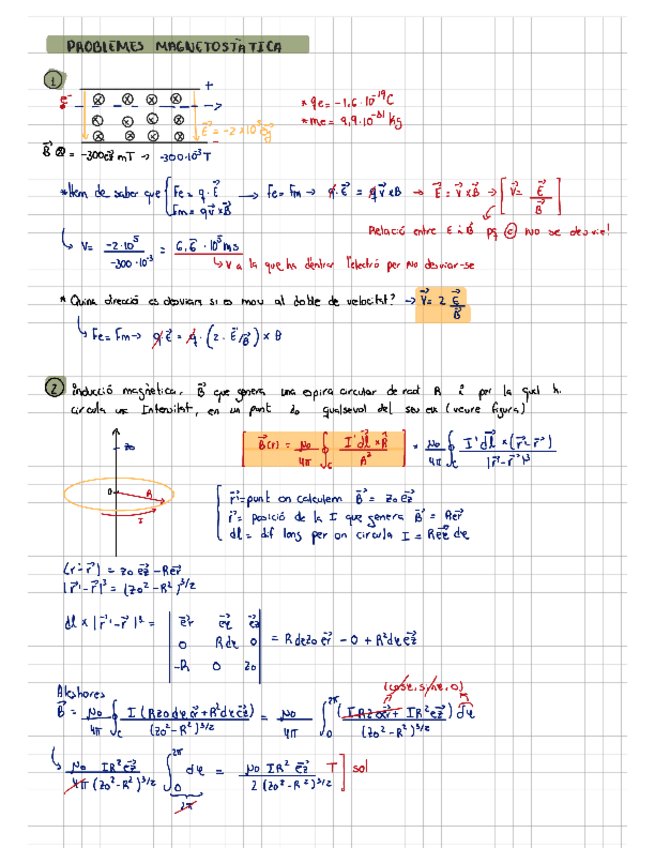 PROBLEMES MAGNETOSTÀTICA
1
+
e⁻
* qe = -1,6·10⁻¹⁹C
* me = 9,9·10⁻³¹ kg
E⃗ = -2×10⁵
-
B⃗ ⊗ = -300 mT → -300·10³T
* Hem de saber que { Fe = q·E⃗ → Fe = Fm → q·E⃗ = q v⃗×B → E⃗ = v⃗×B⃗ → [ V⃗ = E⃗/B⃗ ]
Fm = q v⃗×B⃗
Relació entre E i B⃗ pq e NO se desvie!
↳ V = -2·10⁵ / -300·10⁻³ = 6,6·10⁵ ms
↳ V a la que ha d'entrar l'electró per no desviar-se
* Quina direcció es desviara si es mou al doble de velocitat? → V⃗ = 2 E⃗/B⃗
↳ Fe = Fm → q·E⃗ = q·(2·E⃗/B⃗)×B
2 inducció magnètica, B⃗ que genera una espira circular de radi R i per la qual h.
circula una Intensitat, en un punt z0 qualsevol del seu eix (veure figura)
[ B⃗(r) = μ0/4π ∮c I'dl⃗×R̂ / R² ] = μ0/4π ∮c I'dl⃗×(r⃗-r⃗') / |r⃗-r⃗'|³
z0
0
R
I
r⃗ = punt on calculem B⃗ = z0 e⃗z
r⃗' = posició de la I que genera B⃗ = R e⃗r
dl = dif long per on circula I = R e⃗φ dφ
(r⃗-r⃗') = z0 e⃗z - R e⃗r
|r⃗'-r⃗'|³ = (z0²-R²)^3/2
dl × |r⃗'-r⃗'|³ = | e⃗r e⃗φ e⃗z |
| 0 Rdφ 0 | = R dφ z0 e⃗r - 0 + R²dφ e⃗z
| -R 0 z0 |
Aleshores
(cosφ, sinφ, 0)
B⃗ = μ0/4π ∮c I (R z0 dφ e⃗r + R²dφ e⃗z) / (z0²-R²)^3/2 = μ0/4π ∫0^2π (I R z0 e⃗r + I R² e⃗z) dφ / (z0²-R²)^3/2
↳ μ0 I R² e⃗z / 4π (z0²-R²)^3/2 ∫0^2π dφ = μ0 I R² e⃗z / 2 (z0²-R²)^3/2 T ] sol
2π